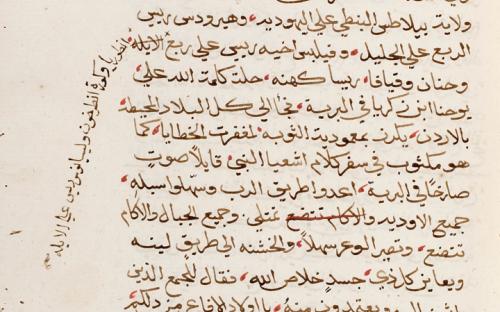 ولاية بيلاطس البنطي علي اليهوديه. وهيرودس ريس
الربع علي الجليل. وفيلبس اخيه ريس علي ربع الايله
وحنان وقيافا. ريسا كهنه. حلت كلمة الله علي
يوحنا ابن زكريا في البرية. فجا الي كل البلاد المحيطه
بالاردن. يكرز بمعمودية التوبه. لمغفرت الخطايا. كما
هو مكتوب في سفر كلام اشعيا النبي. قايلا صوت
صارخا في البرية. اعدوا طريق الرب وسهلوا سبله
جميع الاوديه والاكام تتضع تمتلي. وجميع الجبال والاكام
تتضع. وتصير الوعر سهلا. والخشنه الي طريق لينه
ويعاين كل ذي جسد خلاص الله. فقال للجمع الذين
ويعتمدون منه. يا اولاد الافاعي من دلكم
علي الايله